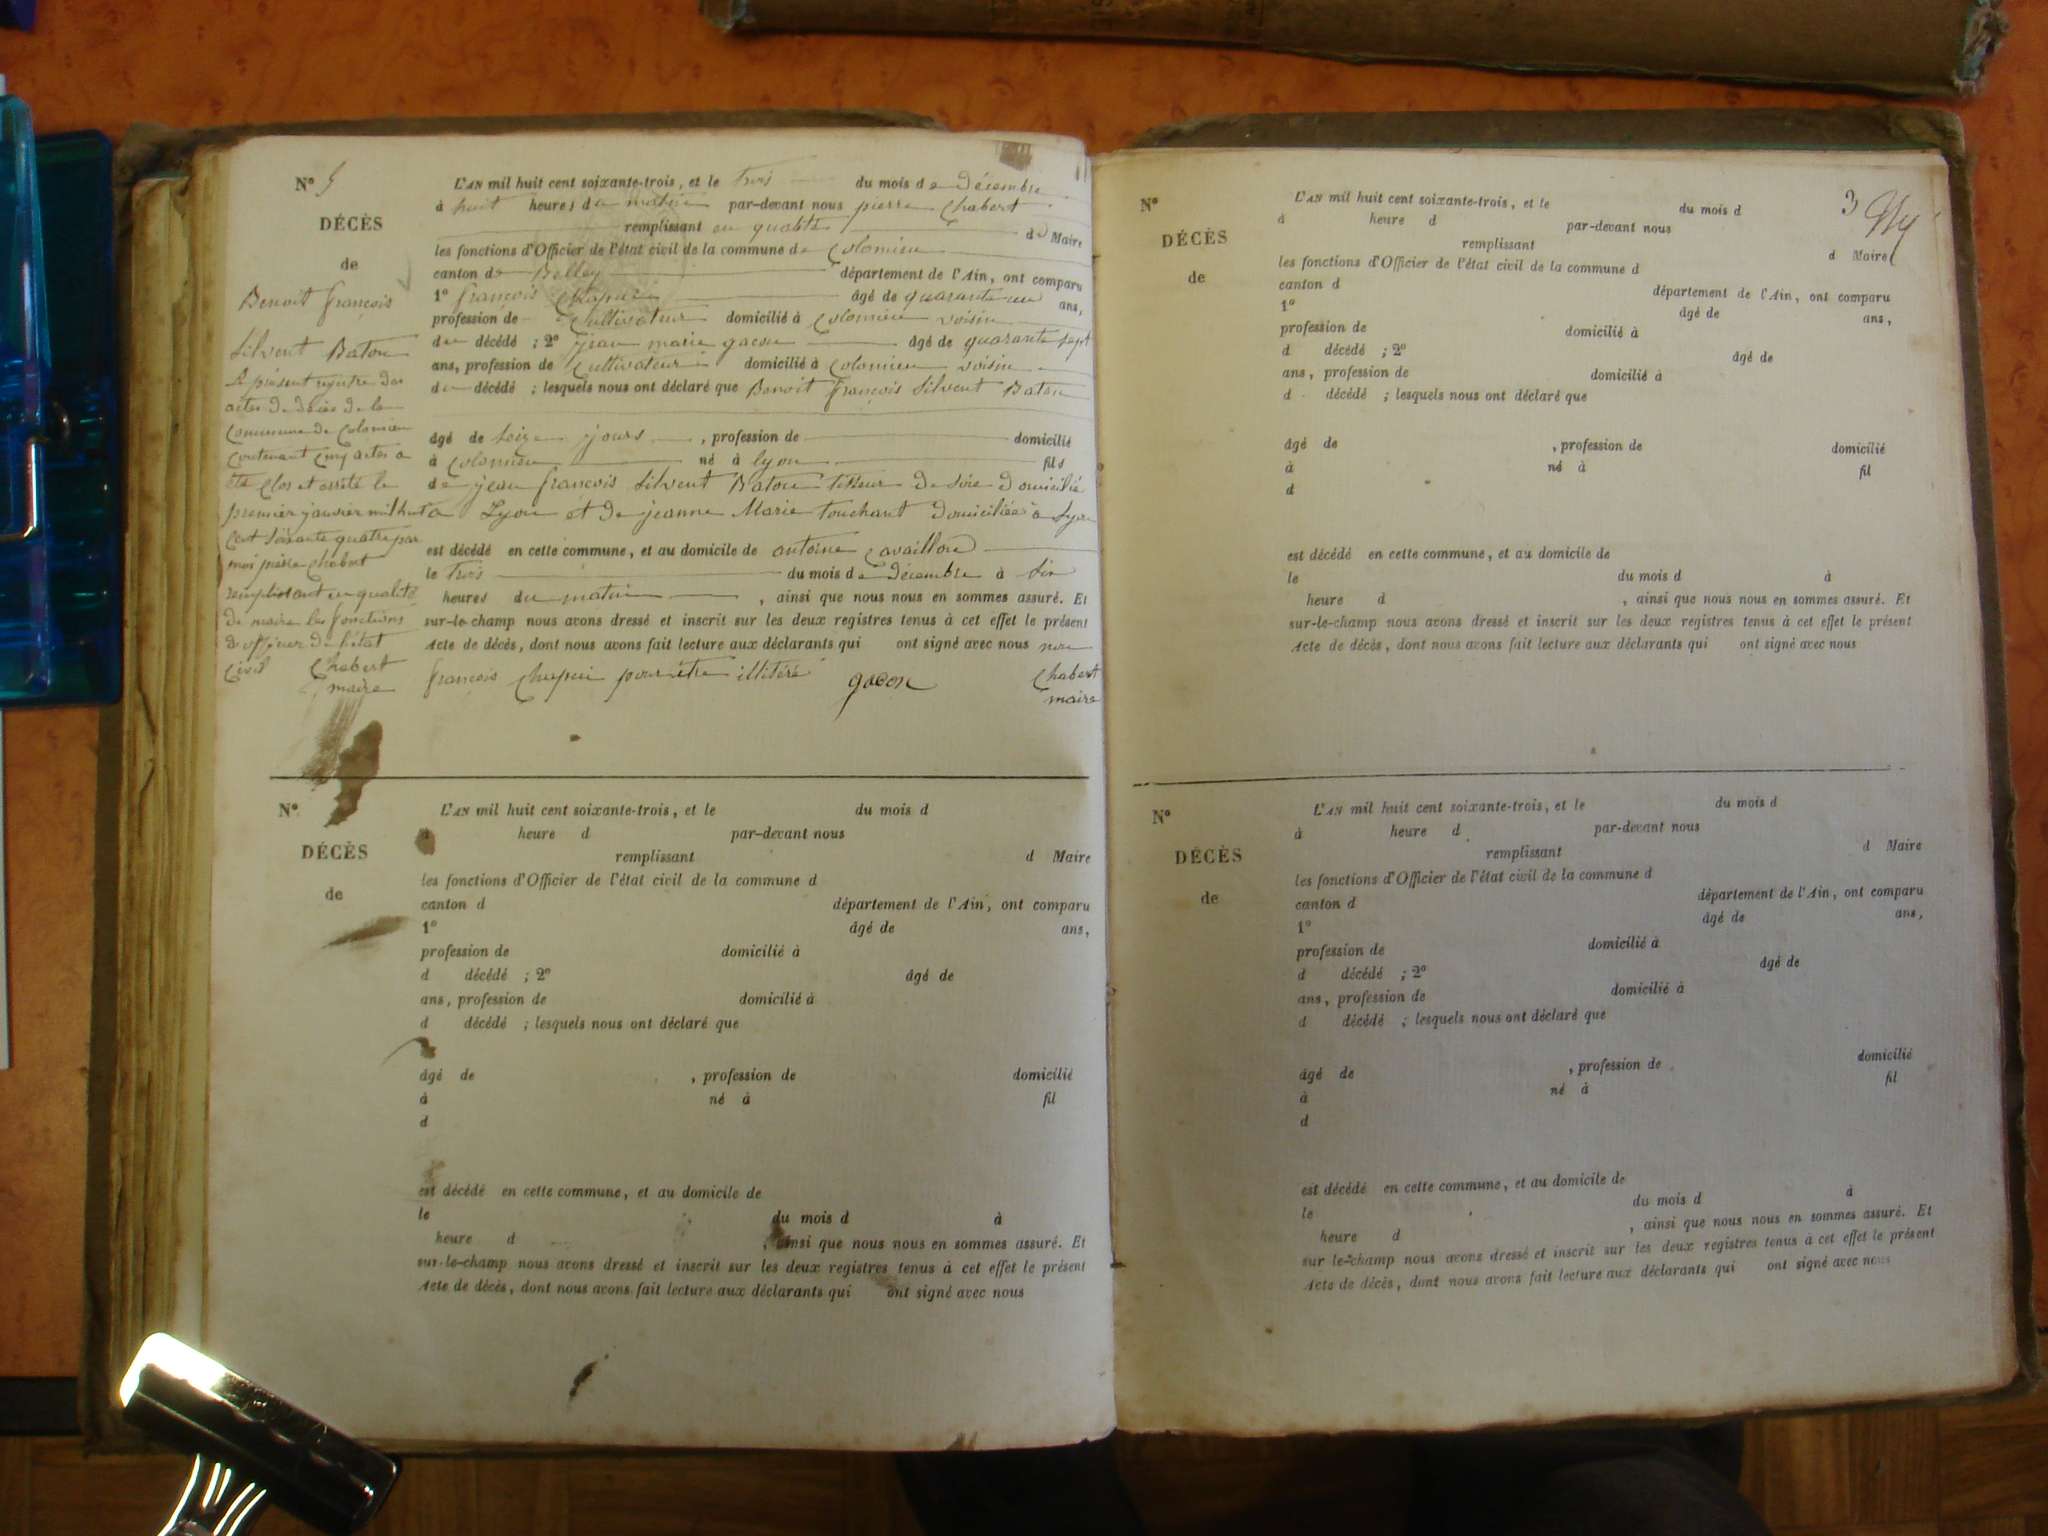 N° 5
DÉCÈS
de
Benoit françois
Silvent Baton
Le présent registre des
actes de décès de la
Commune de Colomieu
Contenant Cinq actes a
été Clos et arrêté le
premier janvier mil huit
Cent soixante quatre par
moi pierre Chabert
remplissant en qualité
de maire les fonctions
d'officier de l'état
Civil Chabert
maire
L'AN mil huit cent soixante-trois, et le Trois du mois de Décembre
à huit heures du matin par-devant nous pierre Chabert
remplissant en qualité d Maire
les fonctions d'Officier de l'état civil de la commune de Colomieu
canton de Belley département de l'Ain, ont comparu
1° françois Chapui âgé de quarante un ans,
profession de Cultivateur domicilié à Colomieu voisin
du décédé ; 2° jean marie gacon âgé de quarante sept
ans, profession de Cultivateur domicilié à Colomieu voisin
du décédé ; lesquels nous ont déclaré que Benoit françois Silvent Baton
âgé de Seize jours , profession de domicilié
à Colomieu né à lyon fils
de jean françois Silvent Baton tisseur de soie Domicilié
a Lyon et de jeanne Marie Touchant Domiciliée a Lyon
est décédé en cette commune, et au domicile de antoine Cavaillon
le Trois du mois de Décembre à Six
heures du matin , ainsi que nous nous en sommes assuré. Et
sur-le-champ nous avons dressé et inscrit sur les deux registres tenus à cet effet le présent
Acte de décès, dont nous avons fait lecture aux déclarants qui ont signé avec nous non
françois Chapui pour être illitéré gacon Chabert
maire
N°
DÉCÈS
de
L'AN mil huit cent soixante-trois, et le du mois d
à heure d par-devant nous
remplissant d Maire
les fonctions d'Officier de l'état civil de la commune d
canton d département de l'Ain, ont comparu
1° âgé de ans,
profession de domicilié à
d décédé ; 2° âgé de
ans, profession de domicilié à
d décédé ; lesquels nous ont déclaré que
âgé de , profession de domicilié
à né à fil
d
est décédé en cette commune, et au domicile de
le du mois d à
heure d , ainsi que nous nous en sommes assuré. Et
sur-le-champ nous avons dressé et inscrit sur les deux registres tenus à cet effet le présent
Acte de décès, dont nous avons fait lecture aux déclarants qui ont signé avec nous
3
N°
DÉCÈS
de
L'AN mil huit cent soixante-trois, et le du mois d
à heure d par-devant nous
remplissant d Maire
les fonctions d'Officier de l'état civil de la commune d
canton d département de l'Ain, ont comparu
1° âgé de ans,
profession de domicilié à
d décédé ; 2° âgé de
ans, profession de domicilié à
d décédé ; lesquels nous ont déclaré que
âgé de , profession de domicilié
à né à fil
d
est décédé en cette commune, et au domicile de
le du mois d à
heure d , ainsi que nous nous en sommes assuré. Et
sur-le-champ nous avons dressé et inscrit sur les deux registres tenus à cet effet le présent
Acte de décès, dont nous avons fait lecture aux déclarants qui ont signé avec nous
N°
DÉCÈS
de
L'AN mil huit cent soixante-trois, et le du mois d
à heure d par-devant nous
remplissant d Maire
les fonctions d'Officier de l'état civil de la commune d
canton d département de l'Ain, ont comparu
1° âgé de ans,
profession de domicilié à
d décédé ; 2° âgé de
ans, profession de domicilié à
d décédé ; lesquels nous ont déclaré que
âgé de , profession de domicilié
à né à fil
d
est décédé en cette commune, et au domicile de
le du mois d à
heure d , ainsi que nous nous en sommes assuré. Et
sur le-champ nous avons dressé et inscrit sur les deux registres tenus à cet effet le présent
Acte de décès, dont nous avons fait lecture aux déclarants qui ont signé avec nous